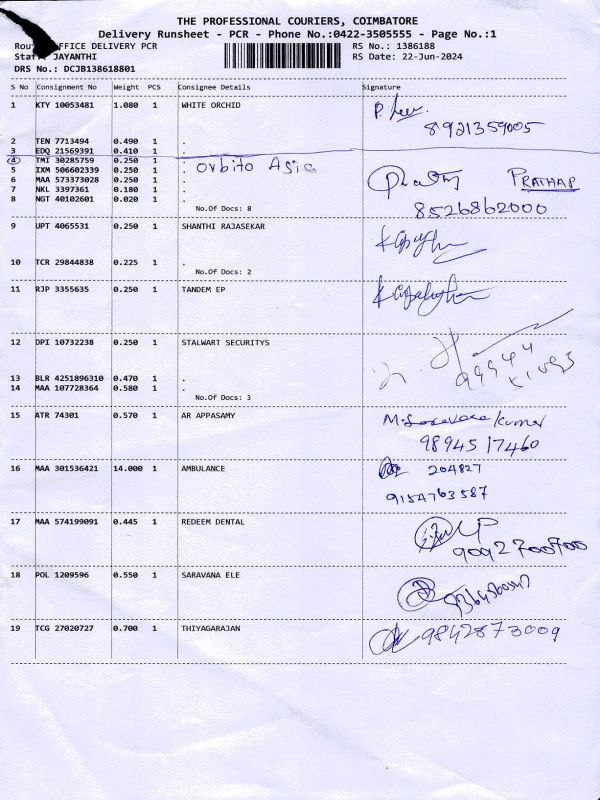 THE PROFESSIONAL COURIERS, COIMBATORE
Delivery Runsheet - PCR - Phone No.:0422-3505555 - Page No.:1
OFFICE DELIVERY PCR RS No.: 1386188
JAYANTHI RS Date: 22-Jun-2024
DRS No.: DCJB138618801
S No Consignment No Weight PCS Consignee Details Signature
1 KTY 10053481 1.080 1 WHITE ORCHID
8921359005
2 TEN 7713494 0.490 1 .
3 EDQ 21569391 0.410 1 .
4 TMI 30285759 0.250 1 . orbito Asia
5 IXM 506602339 0.250 1 .
6 MAA 573373028 0.250 1 . PRATHAP
7 NKL 3397361 0.180 1 .
8 NGT 40102601 0.020 1 . 8526862000
No.Of Docs: 8
9 UPT 4065531 0.250 1 SHANTHI RAJASEKAR
10 TCR 29844838 0.225 1 .
No.Of Docs: 2
11 RJP 3355635 0.250 1 TANDEM EP
12 DPI 10732238 0.250 1 STALWART SECURITYS
13 BLR 4251896310 0.470 1 .
14 MAA 107728364 0.580 1 .
No.Of Docs: 3
15 ATR 74301 0.570 1 AR APPASAMY
9894517460
16 MAA 301536421 14.000 1 AMBULANCE 204827
9154763587
17 MAA 574199091 0.445 1 REDEEM DENTAL
9092700700
18 POL 1209596 0.550 1 SARAVANA ELE
19 TCG 27020727 0.700 1 THIYAGARAJAN 9842873009